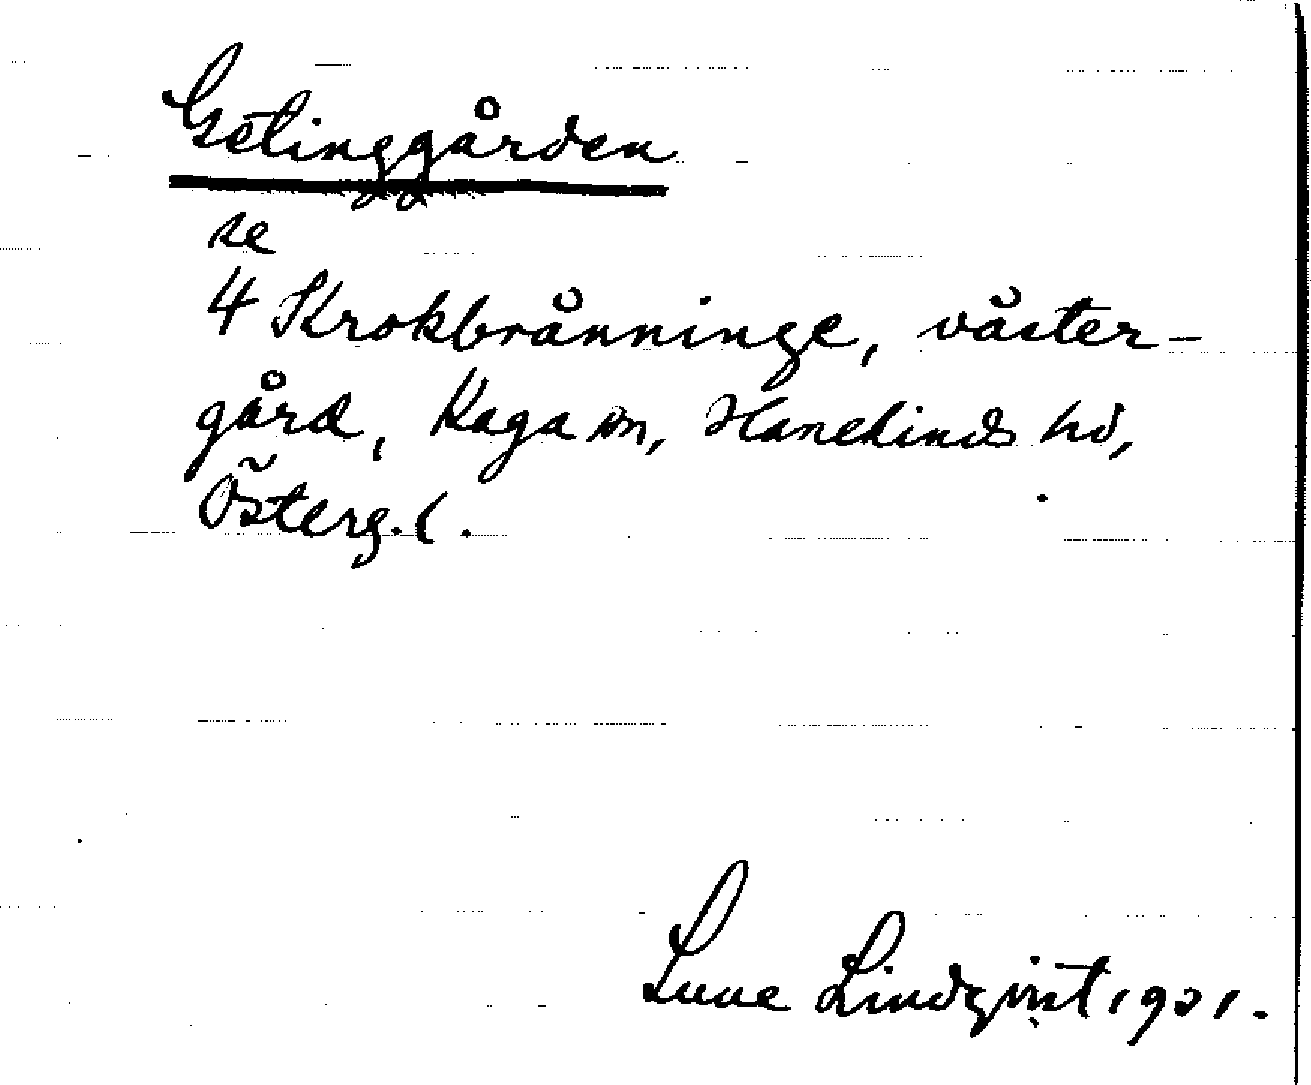 Getinggården
se
4 Krokbränninge, väster-
gård, Kaga sn, Hanekinds hd,
Österg. l.
Sune Lindqvist 1921.